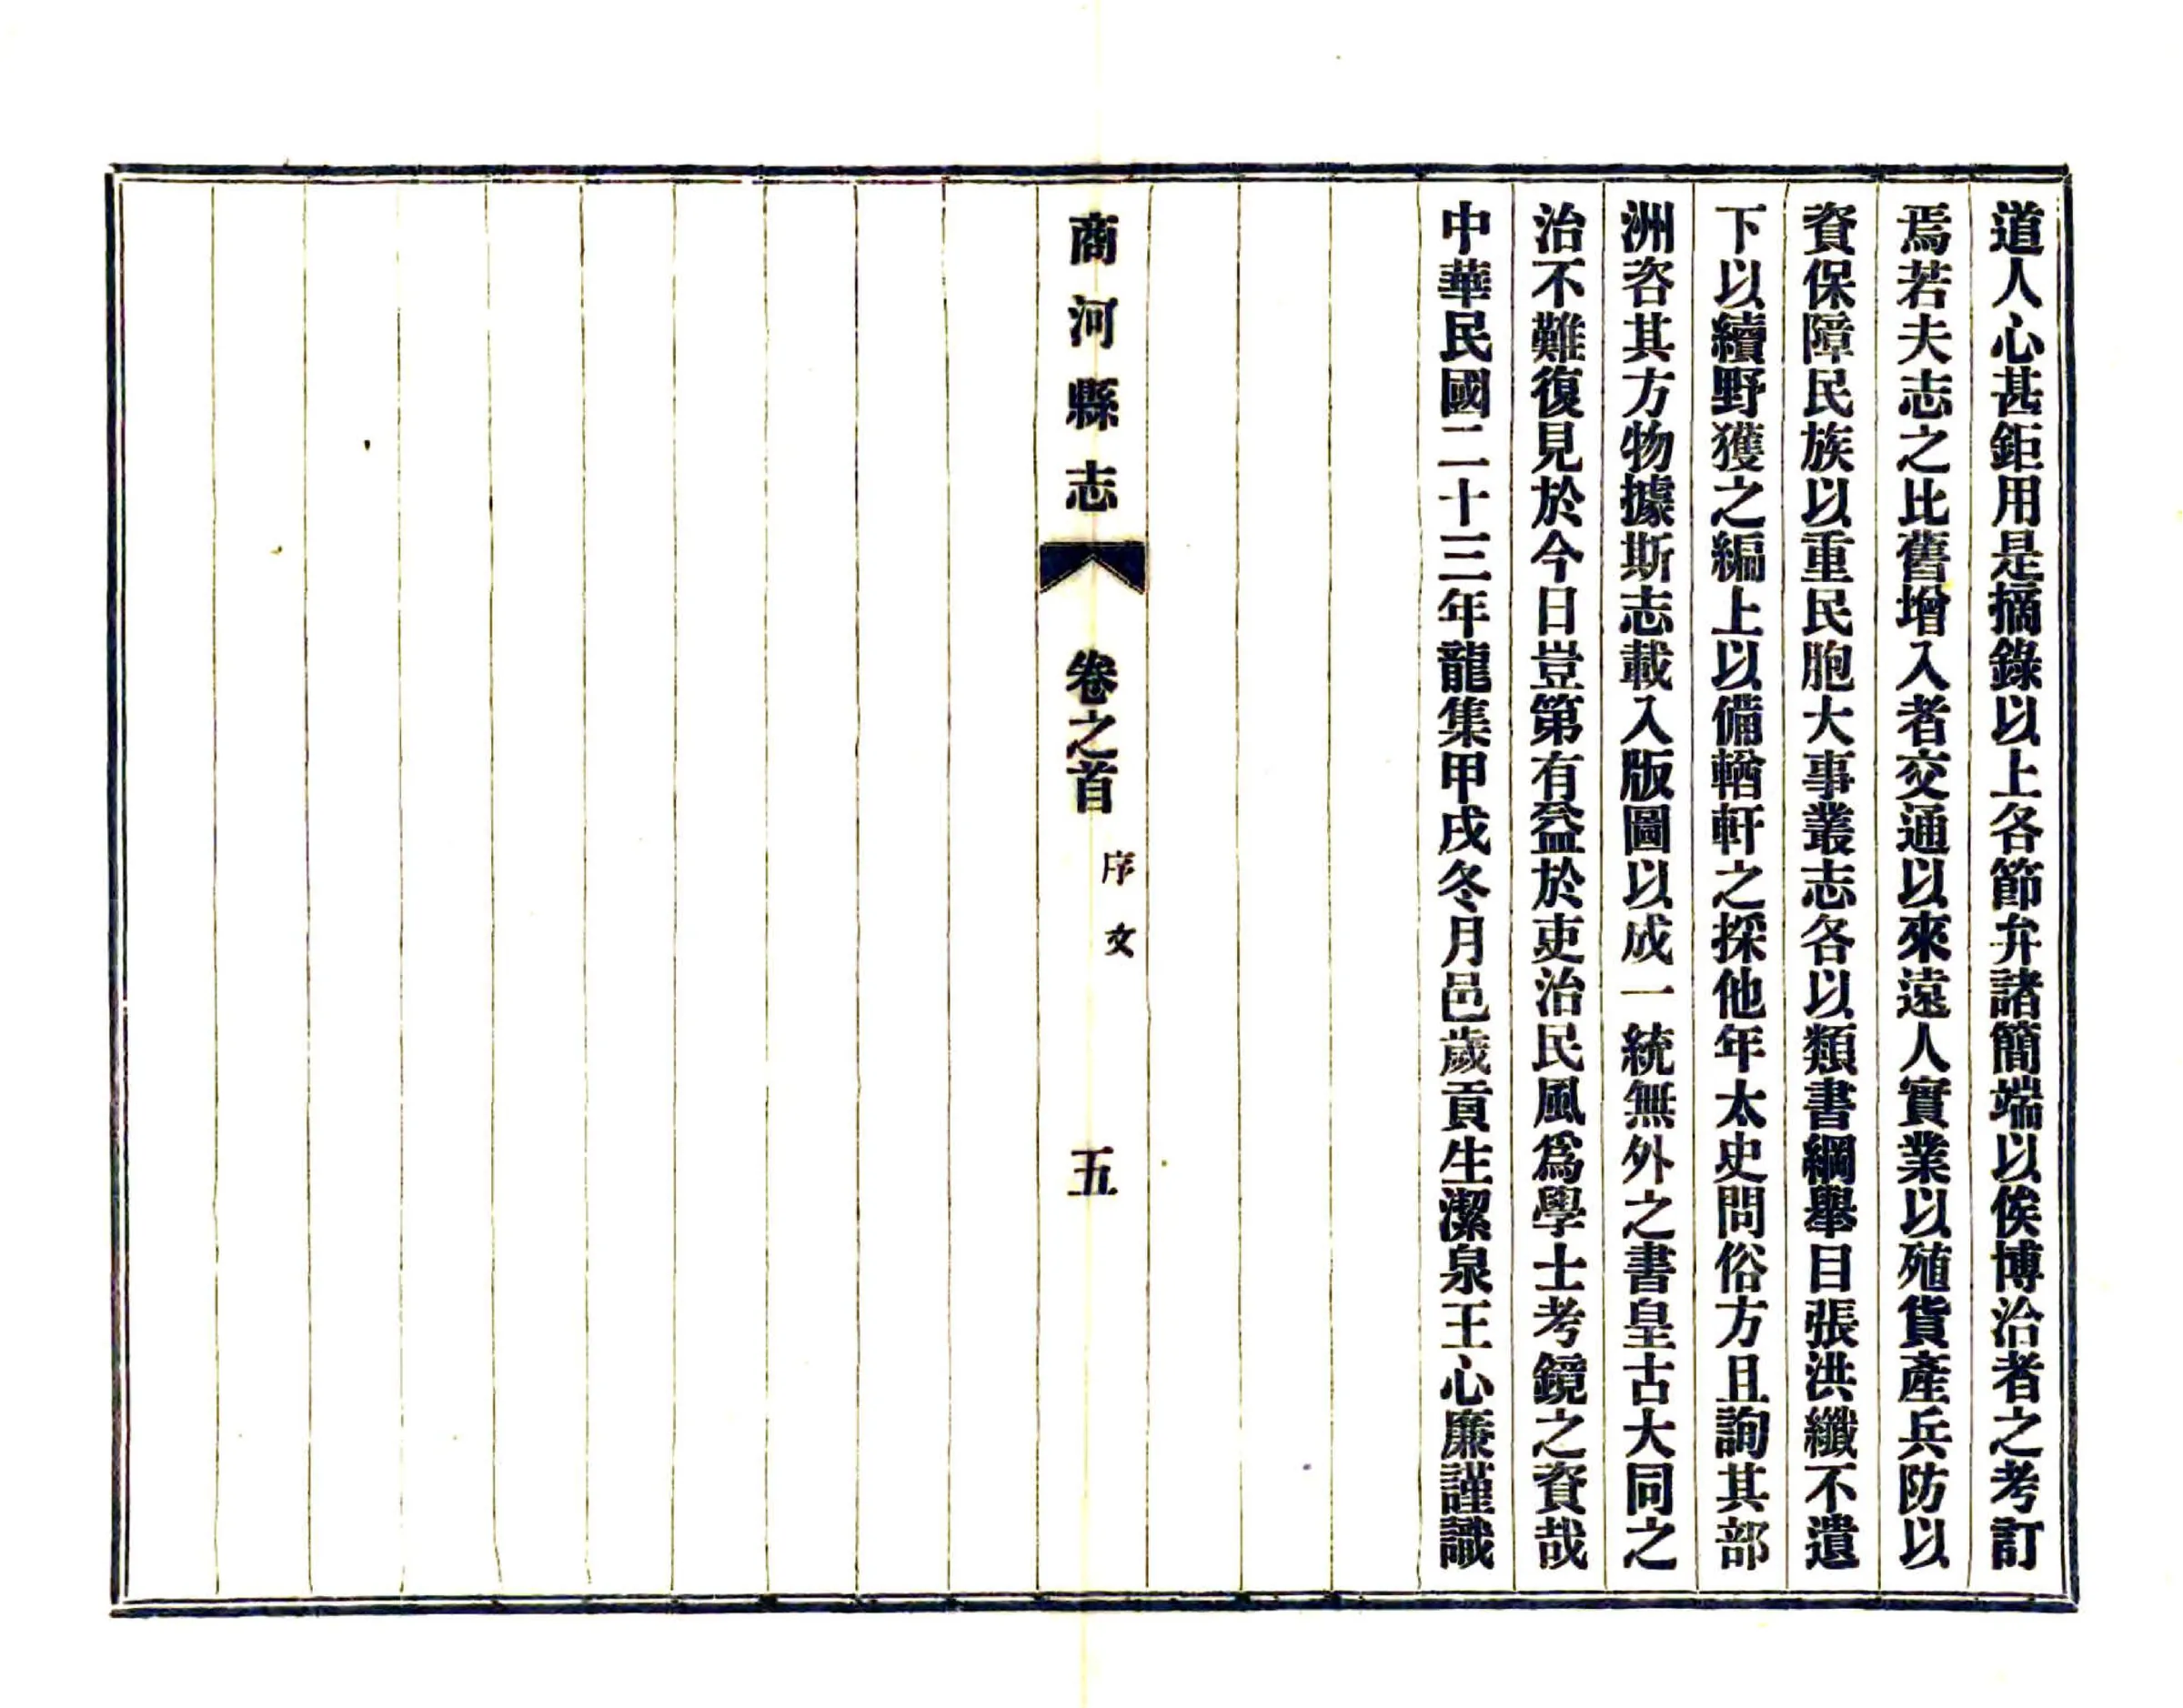 道人心甚鉅用是摘錄以上各節弁諸簡端以俟博洽者之考訂
焉若夫志之比舊增入者交通以來遠人實業以殖貨產兵防以
資保障民族以重民胞大事叢志各以類書綱舉目張洪纖不遺
下以續野獲之編上以備輶軒之採他年太史問俗方且詢其部
洲咨其方物據斯志載入版圖以成一統無外之書皇古大同之
治不難復見於今日豈第有益於吏治民風爲學士考鏡之資哉
中華民國二十三年龍集甲戌冬月邑歲貢生潔泉王心廉謹識
商河縣志
卷之首
序文
五